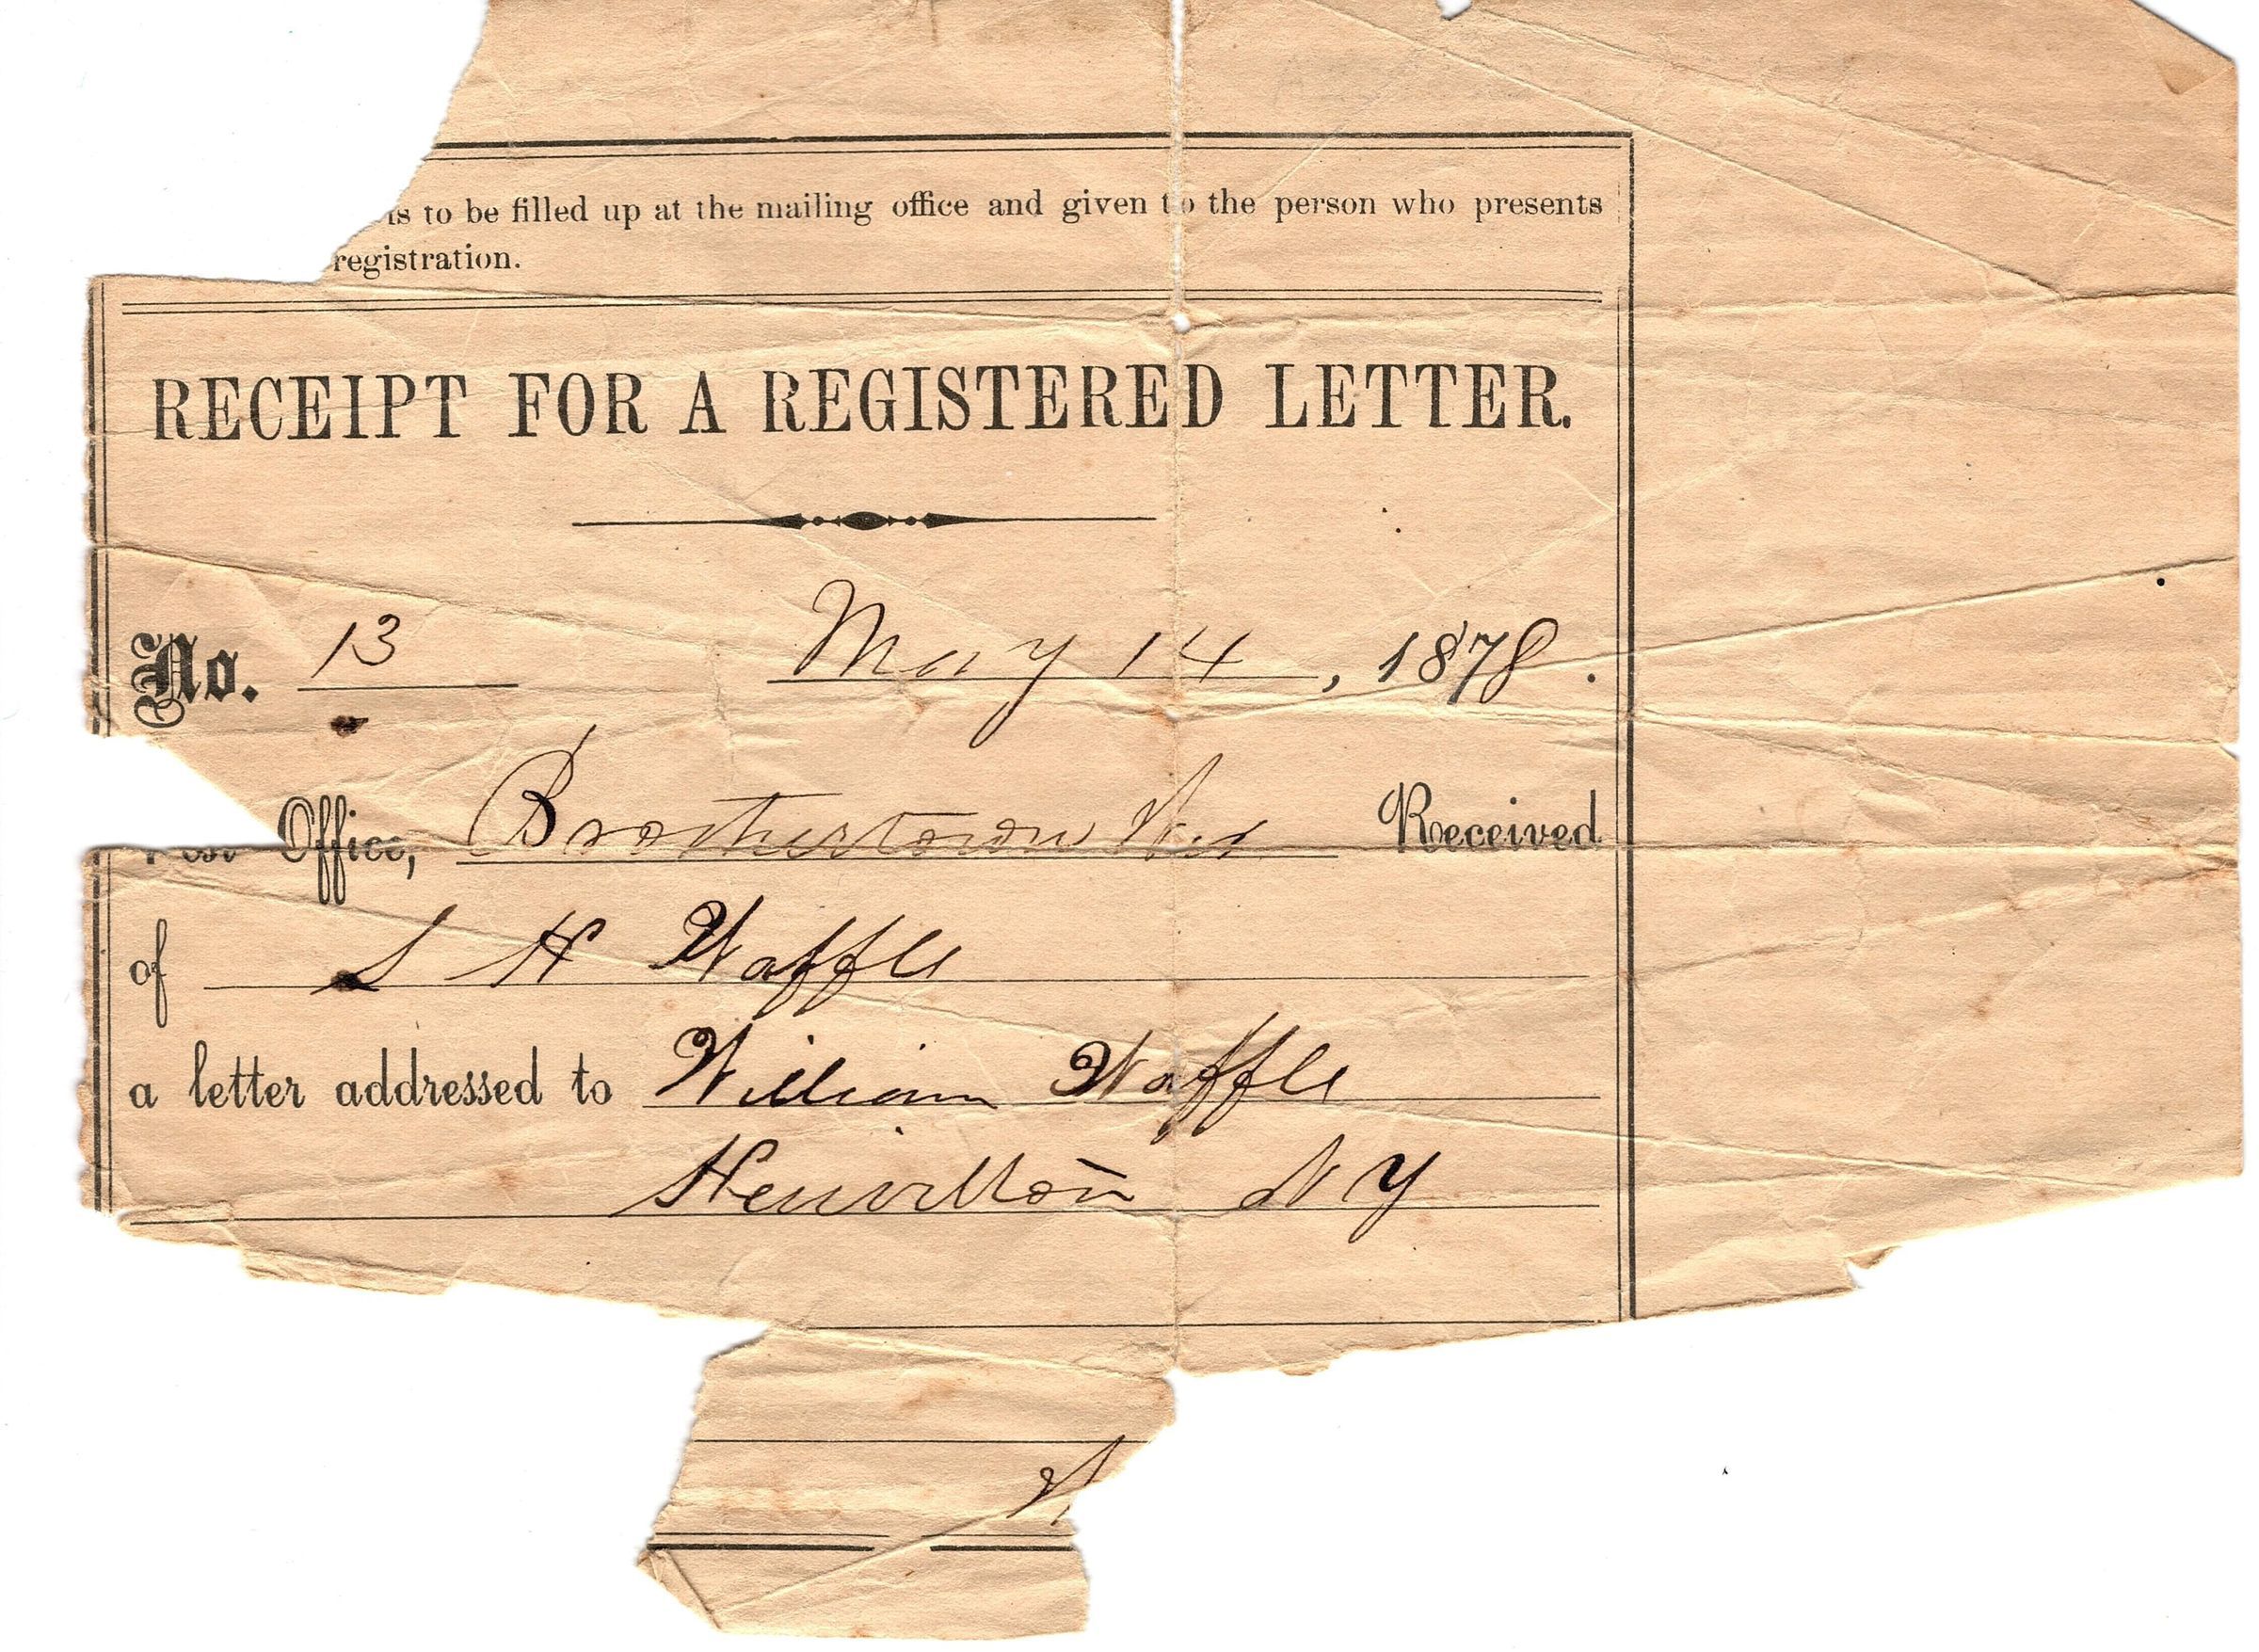 is to be filled up at the mailing office and given to the person who presents
registration.
RECEIPT FOR A REGISTERED LETTER.
No. 13 May 14, 1878.
Post Office, Brothertown Wis Received
of S H Waffle
a letter addressed to William Waffle
Heuvelton NY